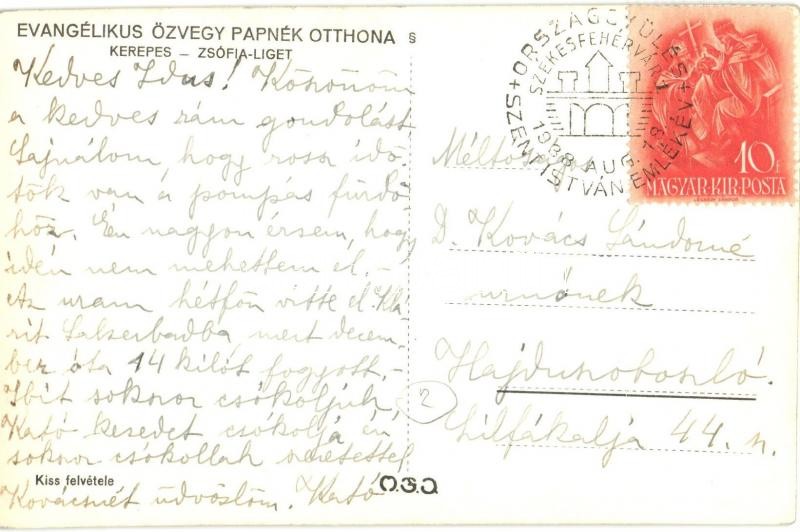 EVANGÉLIKUS ÖZVEGY PAPNÉK OTTHONA §
KEREPES – ZSÓFIA-LIGET
Kedves Idus! Köszönöm
a kedves rám gondolást
Sajnálom, hogy rossz idő-
tök van a pompás fürdő
höz. Én nagyon érzem, hogy
idén nem mehettem el. –
Az uram hétfőn vitte el Klá
rit Salzerbadba, mert decem-
ber óta 14 kilót fogyott. –
Ibit sokszor csókoljuk,
Kató kezedet csókolja én
sokszor csókollak szeretettel
Kiss felvétele
Kovácsnét üdvözlöm. Kató
ORSZÁGGYÜLÉS
SZÉKESFEHÉRVÁRT
1938 AUG. 18.
SZENT ISTVÁN EMLÉKÉV
10f
MAGYAR·KIR·POSTA
LÉGRÁDY SÁNDOR
Méltóságos
D. Kovács Sándorné
urnőnek
Hajduszoboszló.
Lilfákalja 44. sz.
2
O.S.O